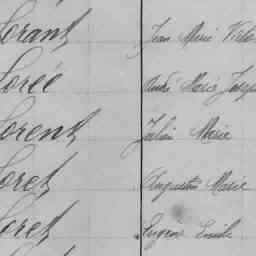 Lorant Jean Marie Victo
Lorée André Marie Josep
Lorent Julien Marie
Loret Augustin Marie
Loret Eugène Emile